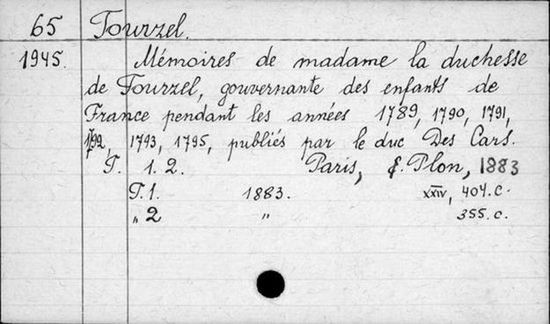 65 Tourzel.
1945. Mémoires de madame la duchesse
de Tourzel, gouvernante des enfants de
France pendant les années 1789, 1790, 1791,
1792, 1793, 1795, publiés par le duc Des Cars.
T. 1. 2. Paris, E. Plon, 1883
T. 1. 1883. XXIV, 404. c.
„ 2 „ 355. c.